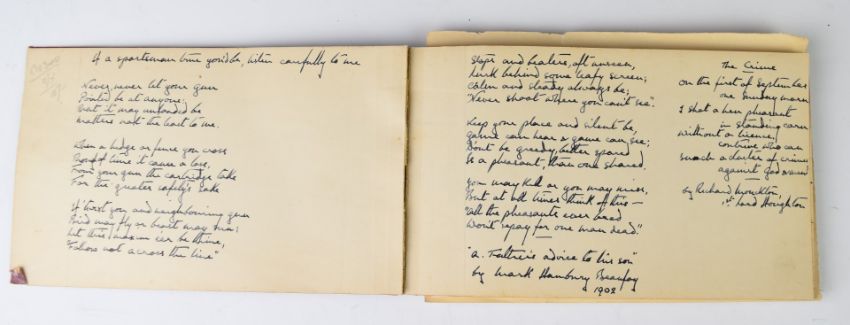 If a sportsman true you'd be, listen carefully to me
Never, never let your gun
Pointed be at anyone;
That it may unloaded be
Matters not the least to me.
When a hedge or fence you cross
Though of time it cause a loss,
From your gun the cartridge take
For the greater safety's sake
If 'twixt you and neighbouring gun
Bird may fly or beast may run;
Let this maxim eer be thine,
"Follow not across the line"
Stops and beaters, oft unseen,
Lurk behind some leafy screen;
Calm and steady always be;
"Never shoot where you can't see".
Keep your place and silent be,
Game can hear & game can see;
Don't be greedy, better spared
Is a pheasant, than one shared.
You may kill or you may miss,
But at all times think of this –
"All the pheasants ever bred
Won't repay for one man dead."
"A Father's advice to his son"
by Mark Hanbury Beaufoy
1902
The Crime
On the first of September
one Sunday morn
I shot a hen pheasant
in standing corn
Without a licence,
contrive who can
Such a cluster of crimes
against God & man
by Richard Monckton
1st Lord Houghton